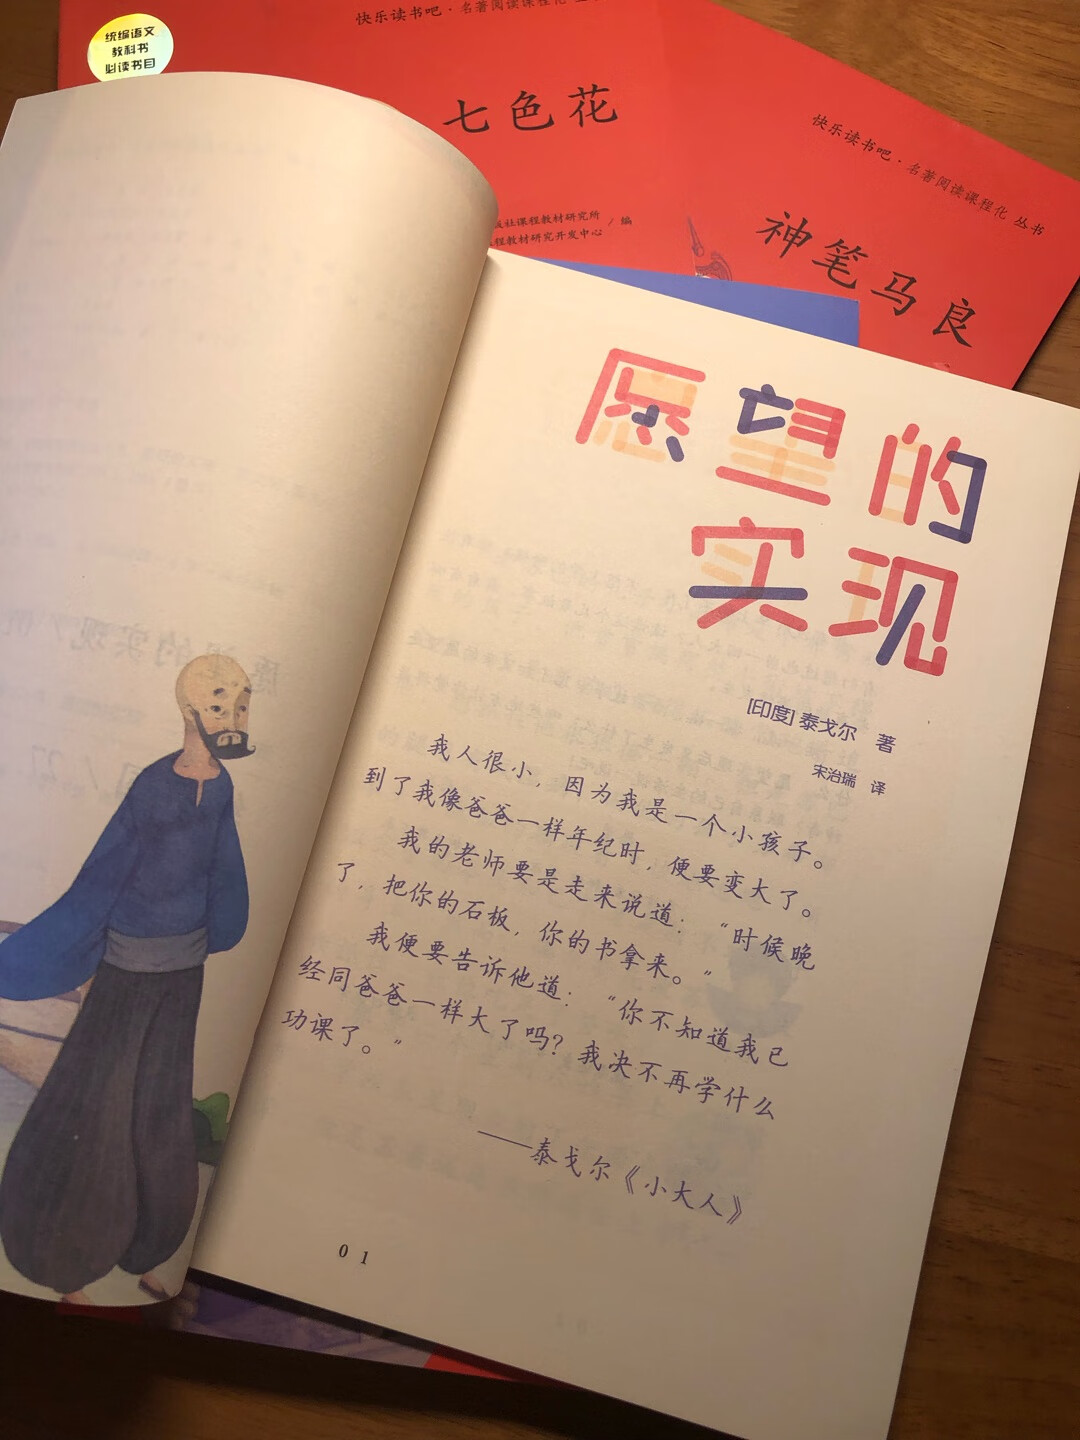 统编语文
教科书
必读书目
快乐读书吧·名著阅读课程化
七色花
版社课程教材研究所
程教材研究开发中心
/ 编
快乐读书吧·名著阅读课程化 丛书
神笔马良
愿望的
实现
[印度] 泰戈尔 著
宋治瑞 译
我人很小，因为我是一个小孩子。
到了我像爸爸一样年纪时，便要变大了。
我的老师要是走来说道：“时候晚
了，把你的石板，你的书拿来。”
我便要告诉他道：“你不知道我已
经同爸爸一样大了吗？我决不再学什么
功课了。”
——泰戈尔《小大人》
01